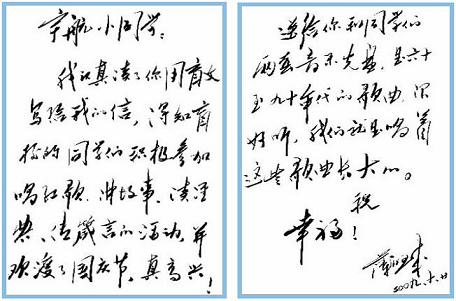 宇航小同学：
我认真读了你用盲文
写给我的信，得知盲
校的同学们积极参加
唱红歌、讲故事、读经
典、传箴言的活动，并
欢渡了国庆节，真高兴！
送给你和同学们
两盘音乐光盘，是六十
至九十年代的歌曲，很
好听，我们就是唱着
这些歌曲长大的。
祝
幸福！
薄熙来
2009.十.廿